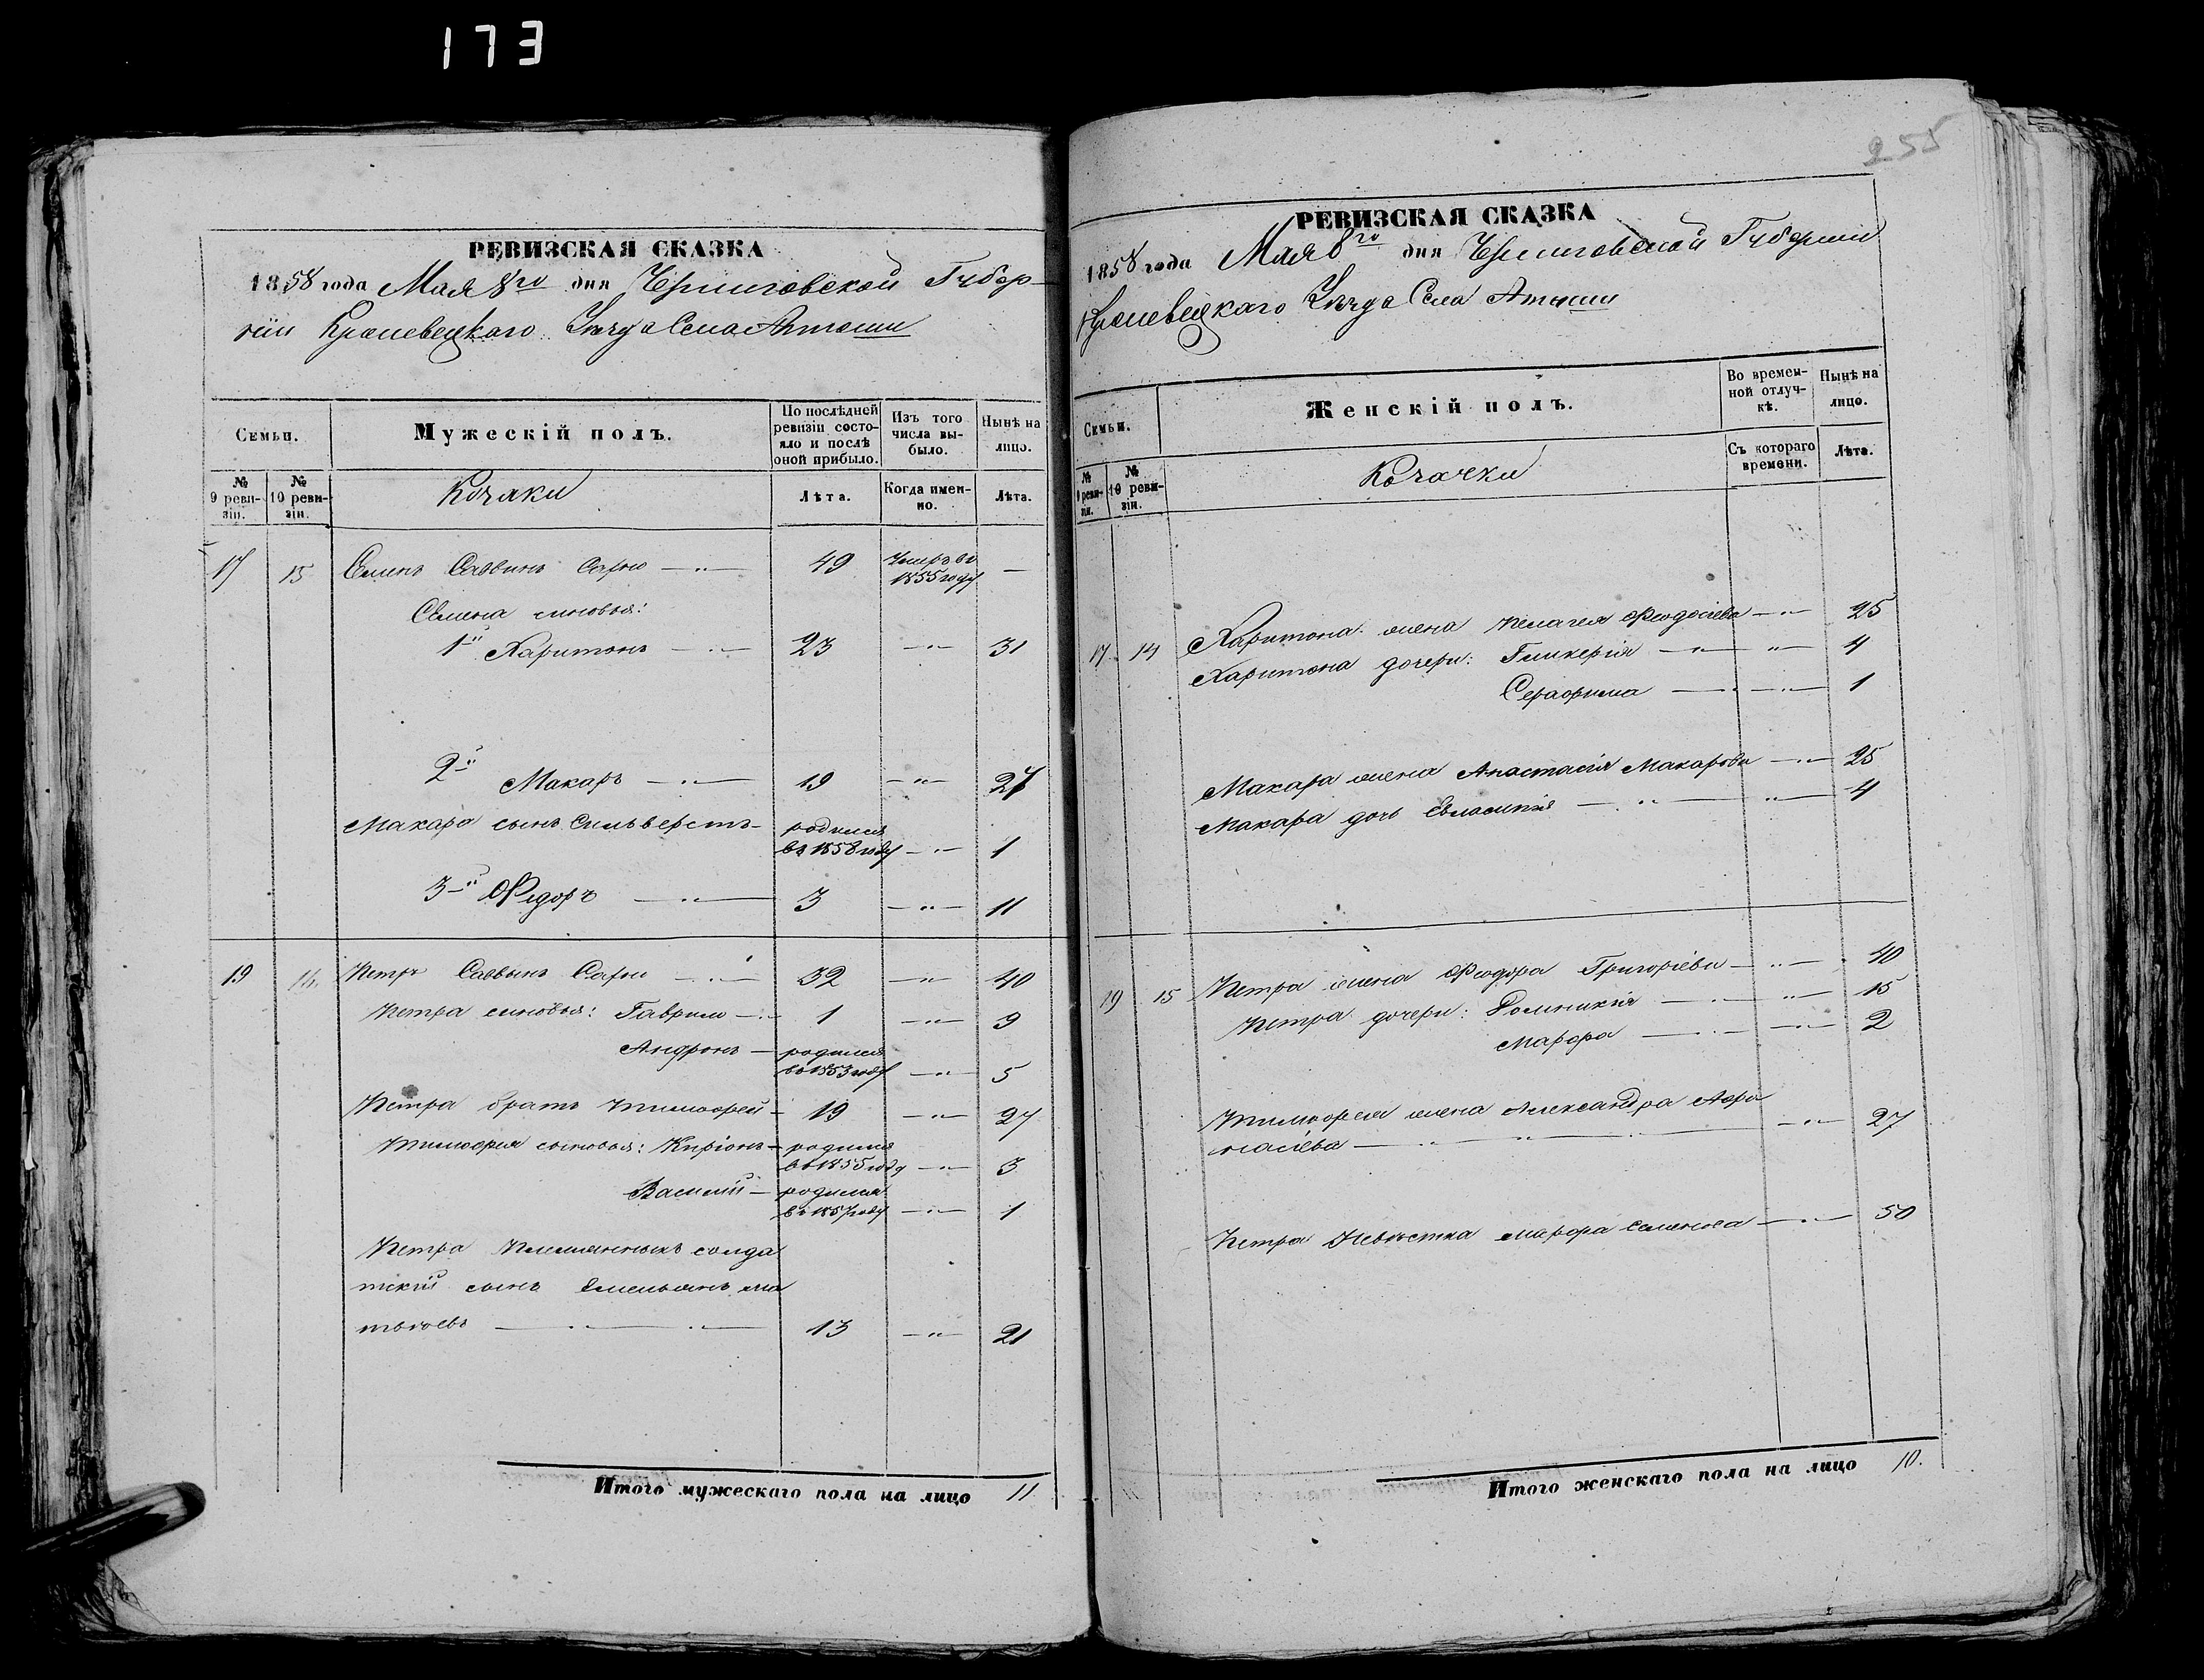 173
РЕВИЗСКАЯ СКАЗКА
1858 года Мая 8го дня Черниговской Губер-
ніи Кролевецкаго Уѣзда Села Атюши
Семьи.
Мужескій полъ.
По послѣдней ревизіи состо-яло и послѣ оной прибыло.
Изъ того числа вы-было.
Нынѣ на лицо.
№ 9 реви-зіи.
№ 10 реви-зіи.
Козаки
Лѣта.
Когда имен-но.
Лѣта.
17 15 Семенъ Саввинъ 49 Умеръ въ 1855 году —
Семена сыновья:
1й Харитонъ — 23 — 31
2й Макаръ — 19 — 27
Макара сынъ Сильверстъ — родился въ 1858 году — 1
3й Фёдоръ — 3 — 11
19 16 Петръ Саввинъ — 32 — 40
Петра сыновья: Гаврило — 1 — 9
Андронъ — родился въ 1853 году — 5
Петра братъ Тимофей — 19 — 27
Тимофея сыновья: Киріонъ — родился въ 1855 году — 3
Василій — родился въ 1857 году — 1
Петра Племянникъ солда
тскій сынъ Емельянъ Ма
твѣевъ — 13 — 21
Итого мужескаго пола на лицо 11
255
РЕВИЗСКАЯ СКАЗКА
1858 года Мая 8го дня Черниговской Губерніи
Кролевецкаго Уѣзда Села Атюши
Семьи.
Женскій полъ.
Во времен-ной отлуч-кѣ.
Нынѣ на лицо.
№ 9 реви-зіи.
№ 10 реви-зіи.
Козачки
Съ котораго времени.
Лѣта.
17 14 Харитона жена Пелагея Феодосіева — 25
Харитона дочери: Гликерія — 4
Серафима — 1
Макара жена Анастасія Макарова — 25
Макара дочь Евлампія — 4
19 15 Петра жена Феодора Григоріева — 40
Петра дочери: Домникія — 15
Марфа — 2
Тимофея жена Александра Афа
насіева — 27
Петра Невѣстка Марфа Семенова — 50
Итого женскаго пола на лицо 10.